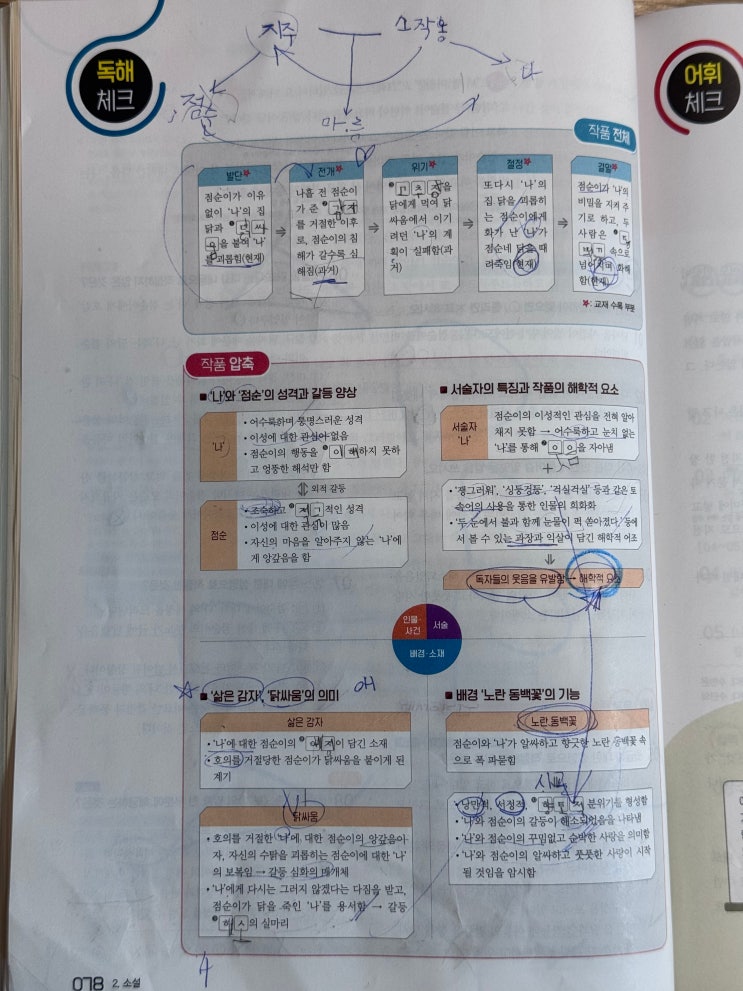 독해
체크
어휘
체크
지주
소작농
점순
마름
나
작품 전체
발단★
점순이가 이유
없이 '나'의 집
닭과 닭싸
움을 붙여 '나'
를 괴롭힘(현재)
전개★
나흘 전 점순이
가 준 감자
를 거절한 이후
로, 점순이의 침
해가 갈수록 심
해짐(과거)
위기★
고추장을
닭에게 먹여 닭
싸움에서 이기
려던 '나'의 계
획이 실패함(과
거)
절정★
또다시 '나'의
집 닭을 괴롭히
는 점순이에게
화가 난 '나'가
점순네 닭을 때
려죽임(현재)
결말★
점순이과 '나'의
비밀을 지켜 주
기로 하고, 두
사람은
속으로
넘어지며 화해
함(현재)
★: 교재 수록 부분
작품 압축
■ '나'와 '점순'의 성격과 갈등 양상
'나'
• 어수룩하며 퉁명스러운 성격
• 이성에 대한 관심이 없음
• 점순이의 행동을 이해하지 못하
고 엉뚱한 해석만 함
외적 갈등
점순
• 조숙하고 적극적인 성격
• 이성에 대한 관심이 많음
• 자신의 마음을 알아주지 않는 '나'에
게 앙갚음을 함
■ 서술자의 특징과 작품의 해학적 요소
서술자
'나'
점순이의 이성적인 관심을 전혀 알아
채지 못함 → 어수룩하고 눈치 없는
'나'를 통해 을 자아냄
+
• '쟁그러워', '싱둥겅둥', '걱실걱실' 등과 같은 토
속어의 사용을 통한 인물의 희화화
• '두 눈에서 불과 함께 눈물이 퍽 쏟아졌다.' 등에
서 볼 수 있는 과장과 익살이 담긴 해학적 어조
독자들의 웃음을 유발함 → 해학적 요소
인물·
사건
서술
배경·소재
■ '삶은 감자', '닭싸움'의 의미
삶은 감자
• '나'에 대한 점순이의 애정이 담긴 소재
• 호의를 거절당한 점순이가 닭싸움을 붙이게 된
계기
닭싸움
• 호의를 거절한 '나'에 대한 점순이의 앙갚음이
자, 자신의 수탉을 괴롭히는 점순이에 대한 '나'
의 보복임 → 갈등 심화의 매개체
• '나'에게 다시는 그러지 않겠다는 다짐을 받고,
점순이가 닭을 죽인 '나'를 용서함 → 갈등
해소의 실마리
■ 배경 '노란 동백꽃'의 기능
노란 동백꽃
점순이와 '나'가 알싸하고 향긋한 노란 동백꽃 속
으로 폭 파묻힘
• 낭만적, 서정적, 향토적 분위기를 형성함
• '나'와 점순이의 갈등이 해소되었음을 나타냄
• '나'와 점순이의 꾸밈없고 순박한 사랑을 의미함
• '나'와 점순이의 알싸하고 풋풋한 사랑이 시작
될 것임을 암시함
078 2. 소설